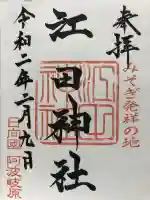 奉拝
みそぎ発祥の地
江田神社
令和二年二月九日
日向國
阿波岐原